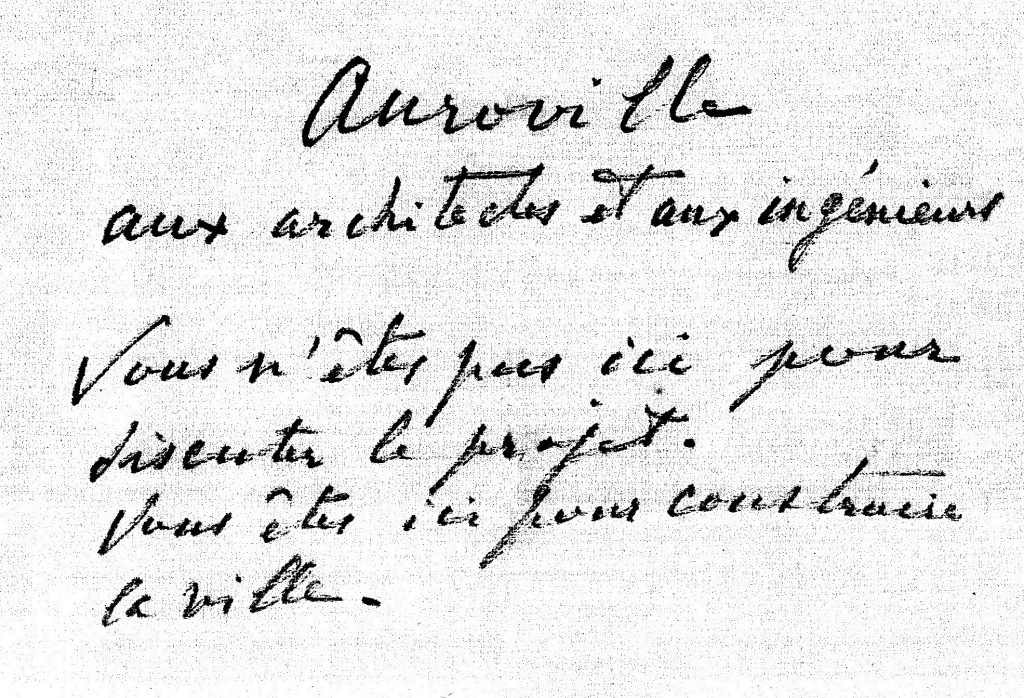 Auroville
aux architectes et aux ingénieurs
Vous n'êtes pas ici pour
discuter le projet.
Vous êtes ici pour construire
la ville.